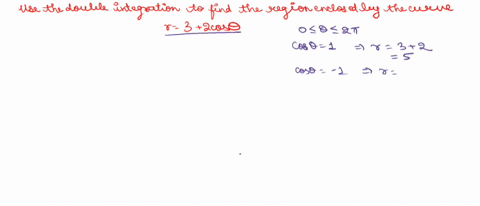 Use the double integration to find the region enclosed by the curve
r = 3 + 2cosθ
0 ≤ θ ≤ 2π
cosθ = 1 ⇒ r = 3 + 2
= 5
cosθ = -1 ⇒ r =